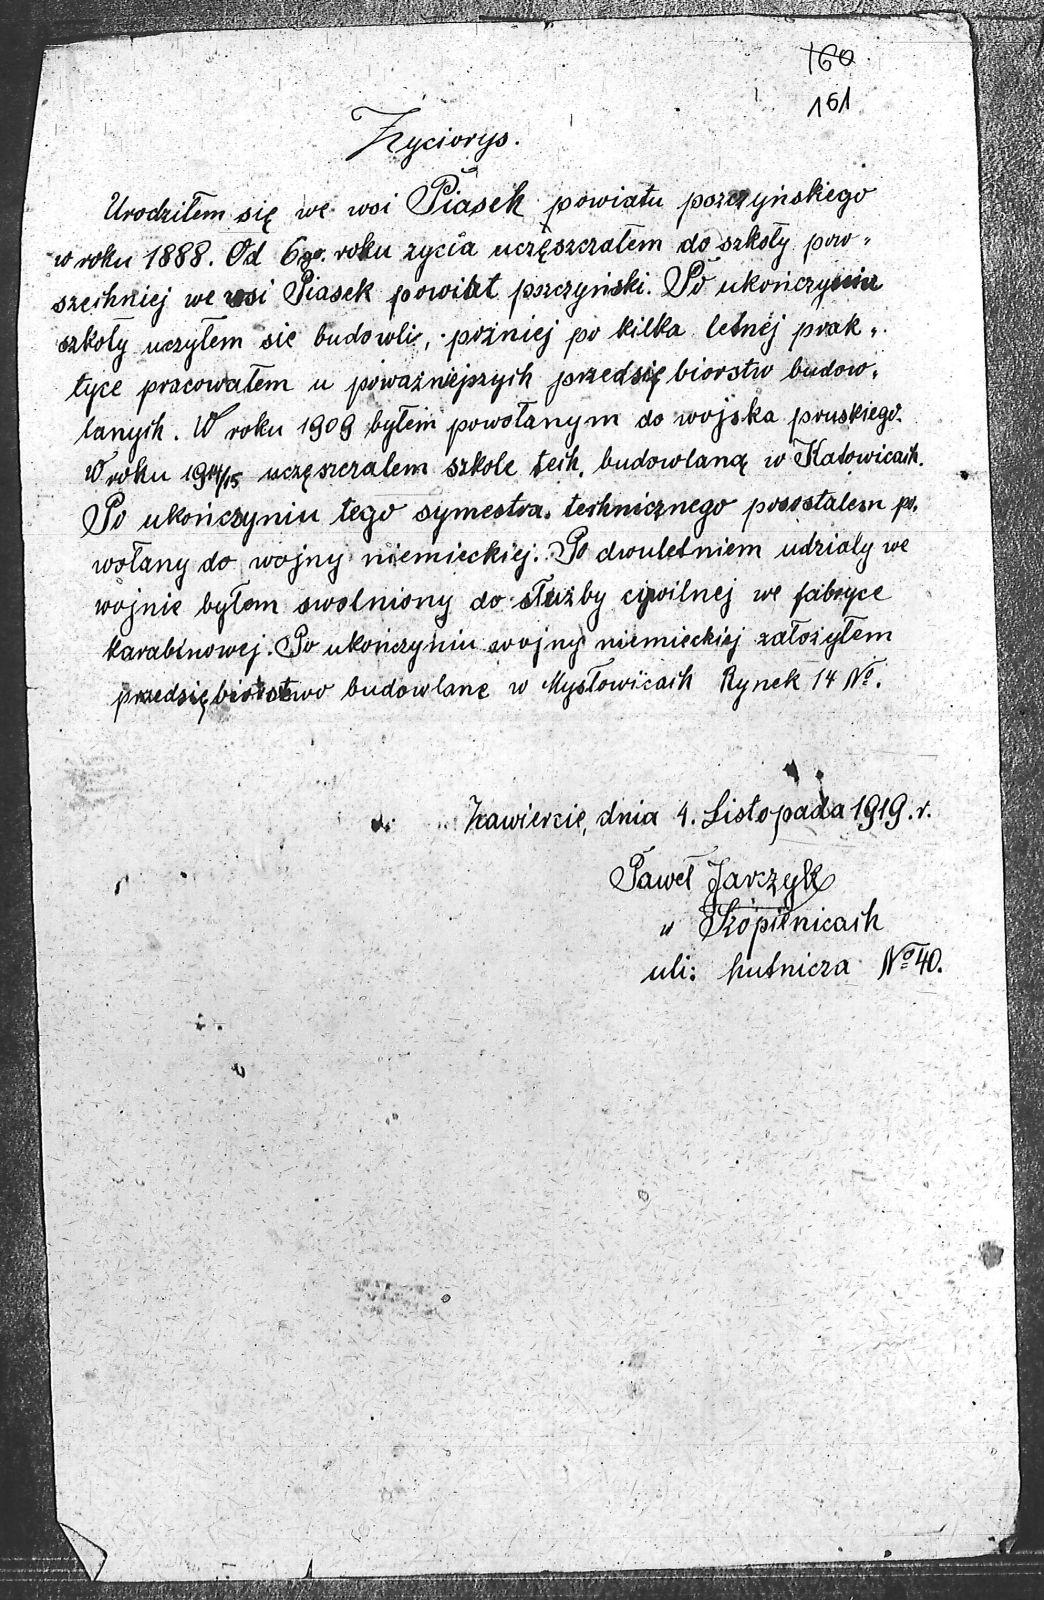 160
161
Życiorys.
Urodziłem się we wsi Piasek powiatu pszczyńskiego
w roku 1888. Od 6go. roku zycia uczęszczałem do szkoły pow„
szechniej we wsi Piasek powiat pszczyński. Po ukończyniu
szkoły uczyłem sie budowli, pozniej po kilka letnej prak„
tyce pracowałem u poważniejszych przedsiębiorstw budow„
lanych. W roku 1909 byłem powołanym do wojska pruskiego.
W roku 1914/15 uczęszczalem szkole tech. budowlaną w Katowicach.
Po ukończyniu tego symestra. technicznego posostalem po„
wołany do wojny niemieckiej. Po dwuletniem udziały we
wojnie byłem swolniony do służby cywilnej we fabryce
karabinowej. Po ukończyniu wojny niemieckiej założyłem
przedsiębiorstwo budowlane w Mysłowicach Rynek 14 No.
Zawiercie, dnia 4. Listopada 1919. r.
Paweł Jarczyk
w Szopienicach
uli: hutnicza No 40.